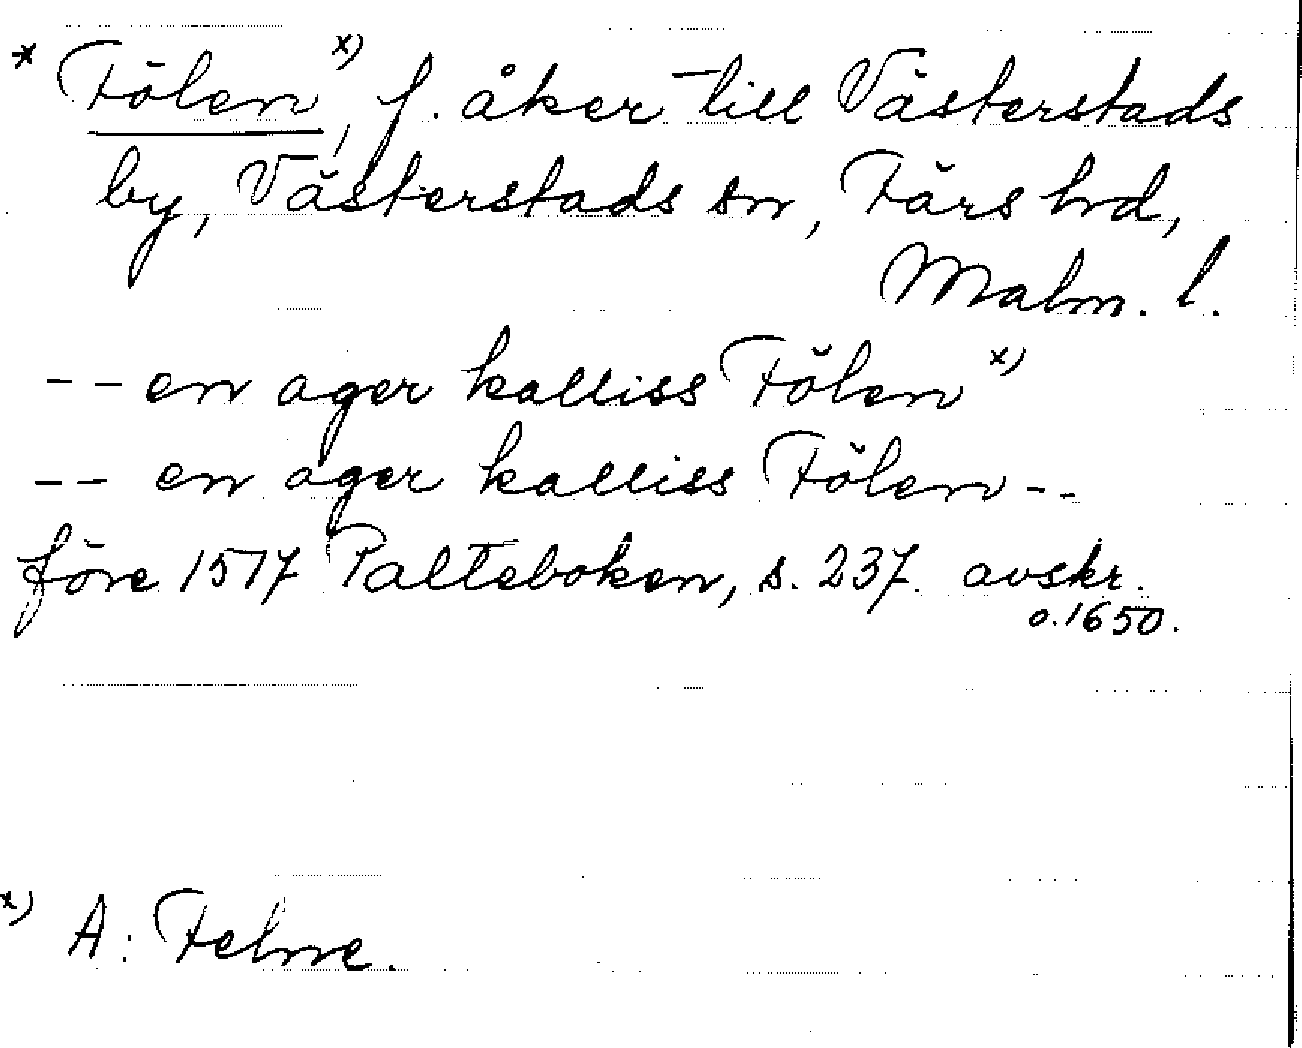 * Fölen x), f. åker till Västerstads
by, Västerstads sn, Färs hrd,
Malm. l.
-- en ager kalliss Fölen x)
-- en ager kalliss Fölen --
före 1517 Palteboken, s. 237. avskr.
o. 1650.
x) A: Felne.